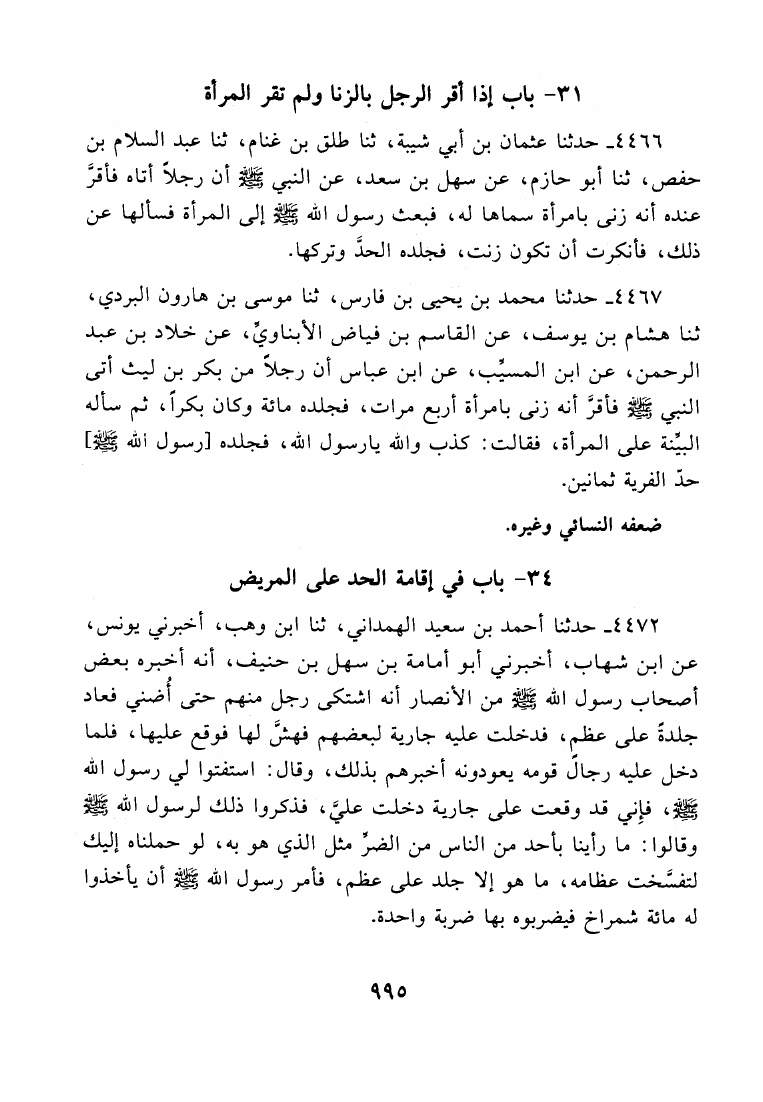 ٣١- باب إذا أقر الرجل بالزنا ولم تقر المرأة
٤٤٦٦ـ حدثنا عثمان بن أبي شيبة، ثنا طلق بن غنام، ثنا عبد السلام بن
حفص، ثنا أبو حازم، عن سهل بن سعد، عن النبي ﷺ أن رجلاً أتاه فأقرَّ
عنده أنه زنى بامرأة سماها له، فبعث رسول الله ﷺ إلى المرأة فسألها عن
ذلك، فأنكرت أن تكون زنت، فجلده الحدَّ وتركها.
٤٤٦٧ـ حدثنا محمد بن يحيى بن فارس، ثنا موسى بن هارون البردي،
ثنا هشام بن يوسف، عن القاسم بن فياض الأبناويِّ، عن خلاد بن عبد
الرحمن، عن ابن المسيِّب، عن ابن عباس أن رجلاً من بكر بن ليث أتى
النبي ﷺ فأقرَّ أنه زنى بامرأة أربع مرات، فجلده مائة وكان بكراً، ثم سأله
البيِّنة على المرأة، فقالت: كذب والله يارسول الله، فجلده [رسول الله ﷺ]
حدّ الفرية ثمانين.
ضعفه النسائي وغيره.
٣٤- باب في إقامة الحد على المريض
٤٤٧٢ـ حدثنا أحمد بن سعيد الهمداني، ثنا ابن وهب، أخبرني يونس،
عن ابن شهاب، أخبرني أبو أمامة بن سهل بن حنيف، أنه أخبره بعض
أصحاب رسول الله ﷺ من الأنصار أنه اشتكى رجل منهم حتى أُضني فعاد
جلدةً على عظم، فدخلت عليه جارية لبعضهم فهشَّ لها فوقع عليها، فلما
دخل عليه رجالُ قومه يعودونه أخبرهم بذلك، وقال: استفتوا لي رسول الله
ﷺ، فإني قد وقعت على جارية دخلت عليَّ، فذكروا ذلك لرسول الله ﷺ
وقالوا: ما رأينا بأحد من الناس من الضرِّ مثل الذي هو به، لو حملناه إليك
لتفسَّخت عظامه، ما هو إلا جلد على عظم، فأمر رسول الله ﷺ أن يأخذوا
له مائة شمراخ فيضربوه بها ضربة واحدة.
٩٩٥